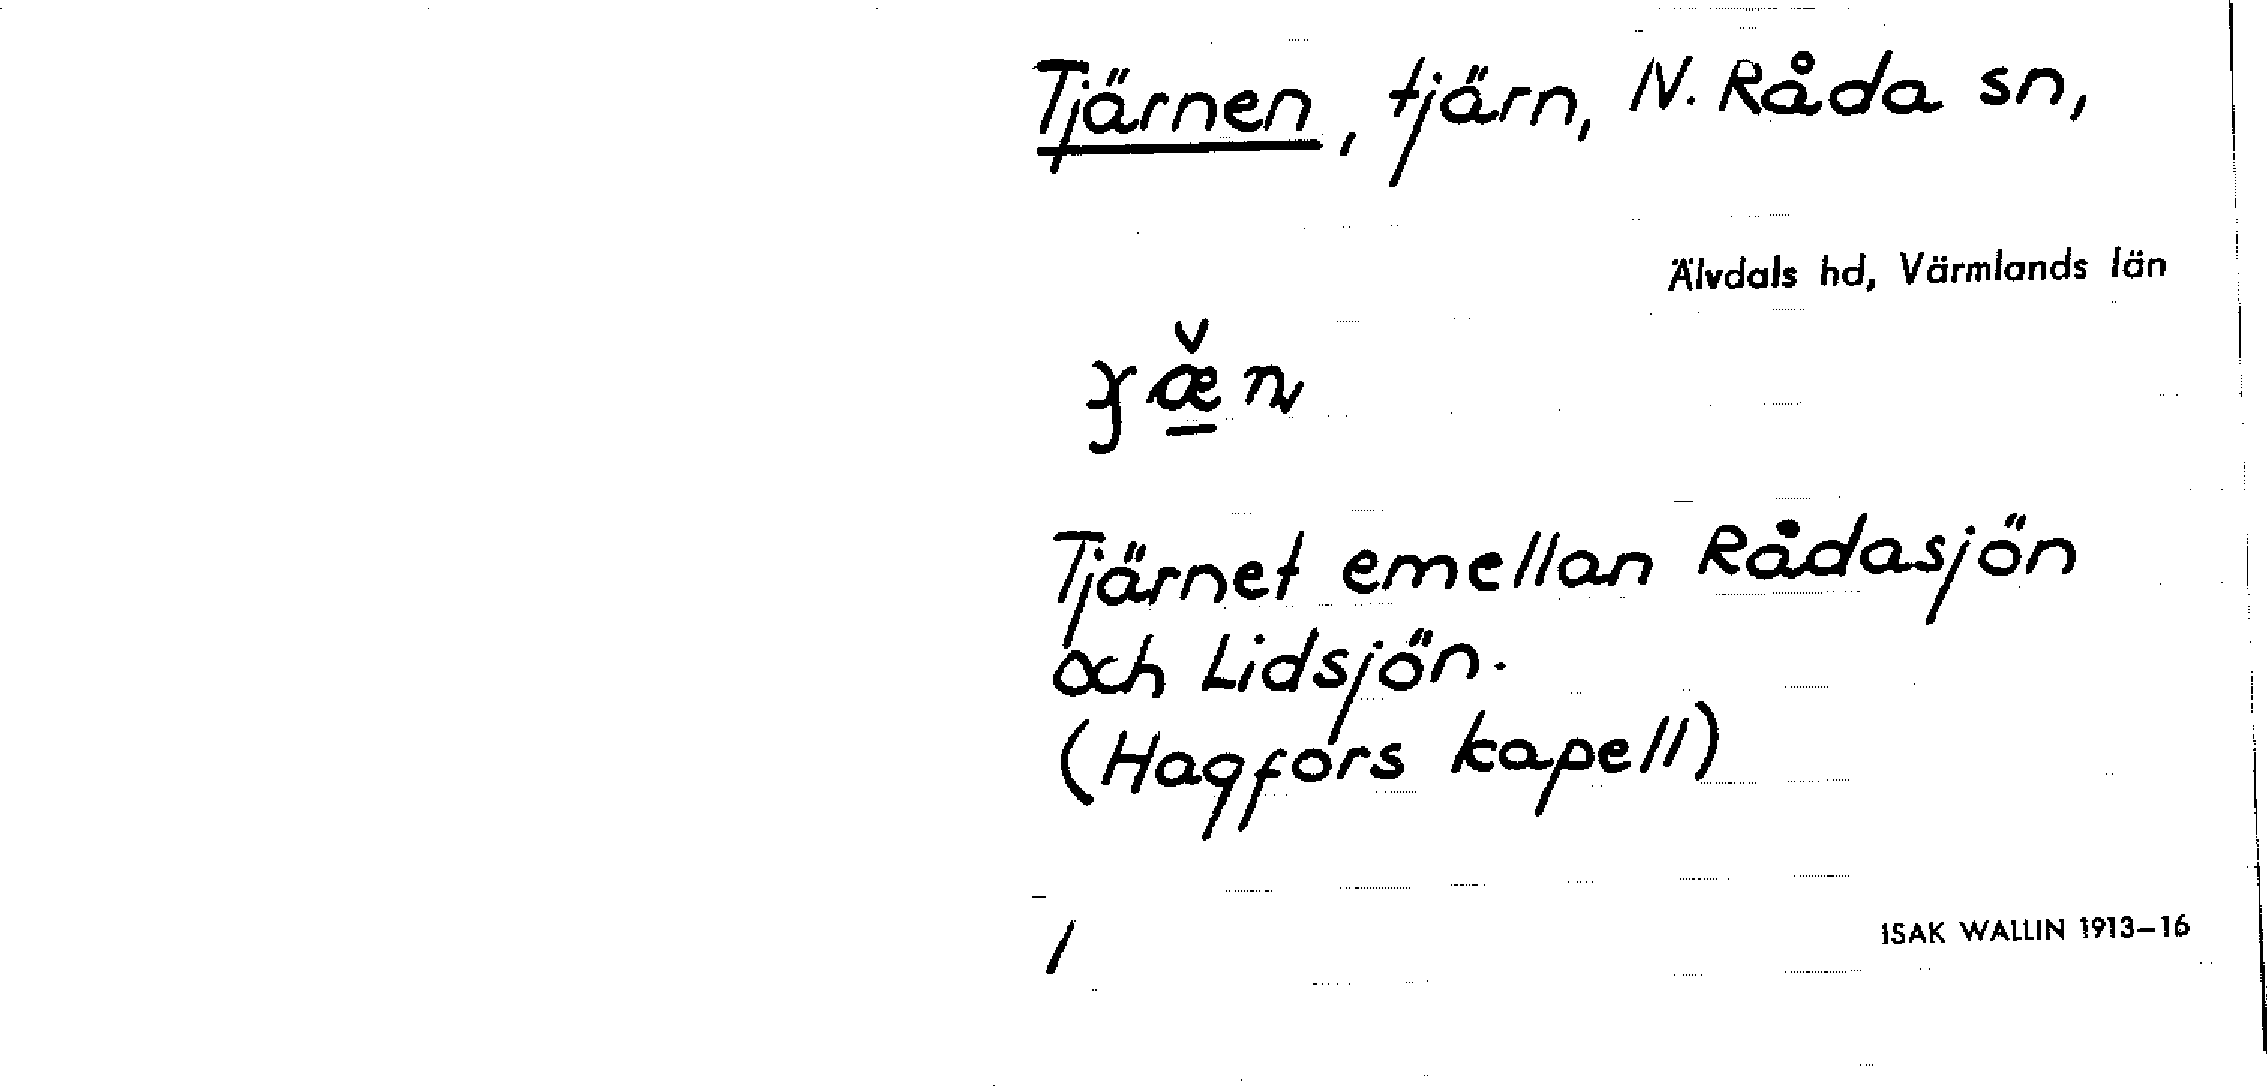 Tjärnen, tjärn, N. Råda sn,
Älvdals hd, Värmlands län
Tjärnet emellan Rådasjön
och Lidsjön.
(Hagfors kapell)
1
ISAK WALLIN 1913–16